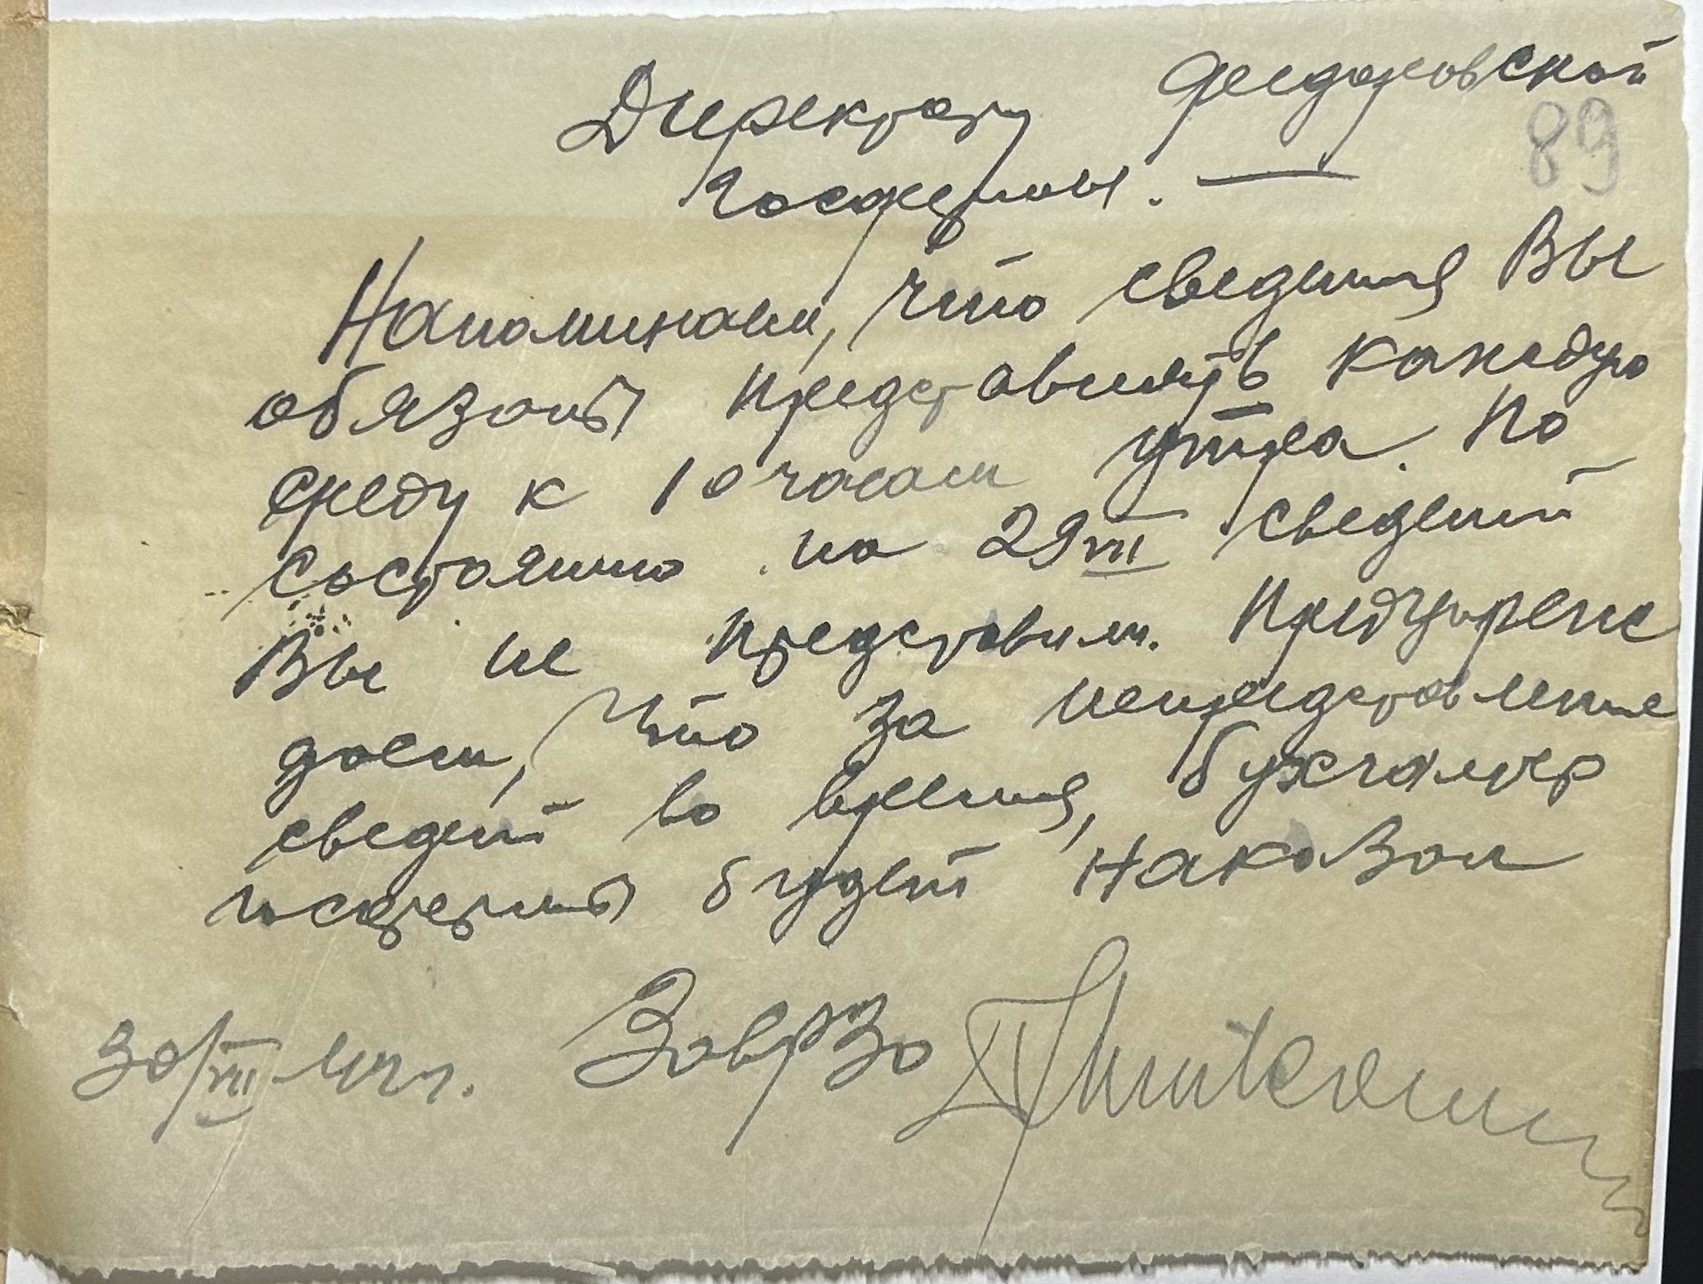 Директору Федоровской
89
Госфермы. —
Напоминаем, что сведения Вы
обязаны представлять каждую
среду к 10 часам утра. По
состоянию на 29 VII сведений
Вы не представили. Предупреж
даем, что за непредставление
сведений во время, бухгалтер
госфермы будет наказан
30/VII 42 г. Зав РЗО